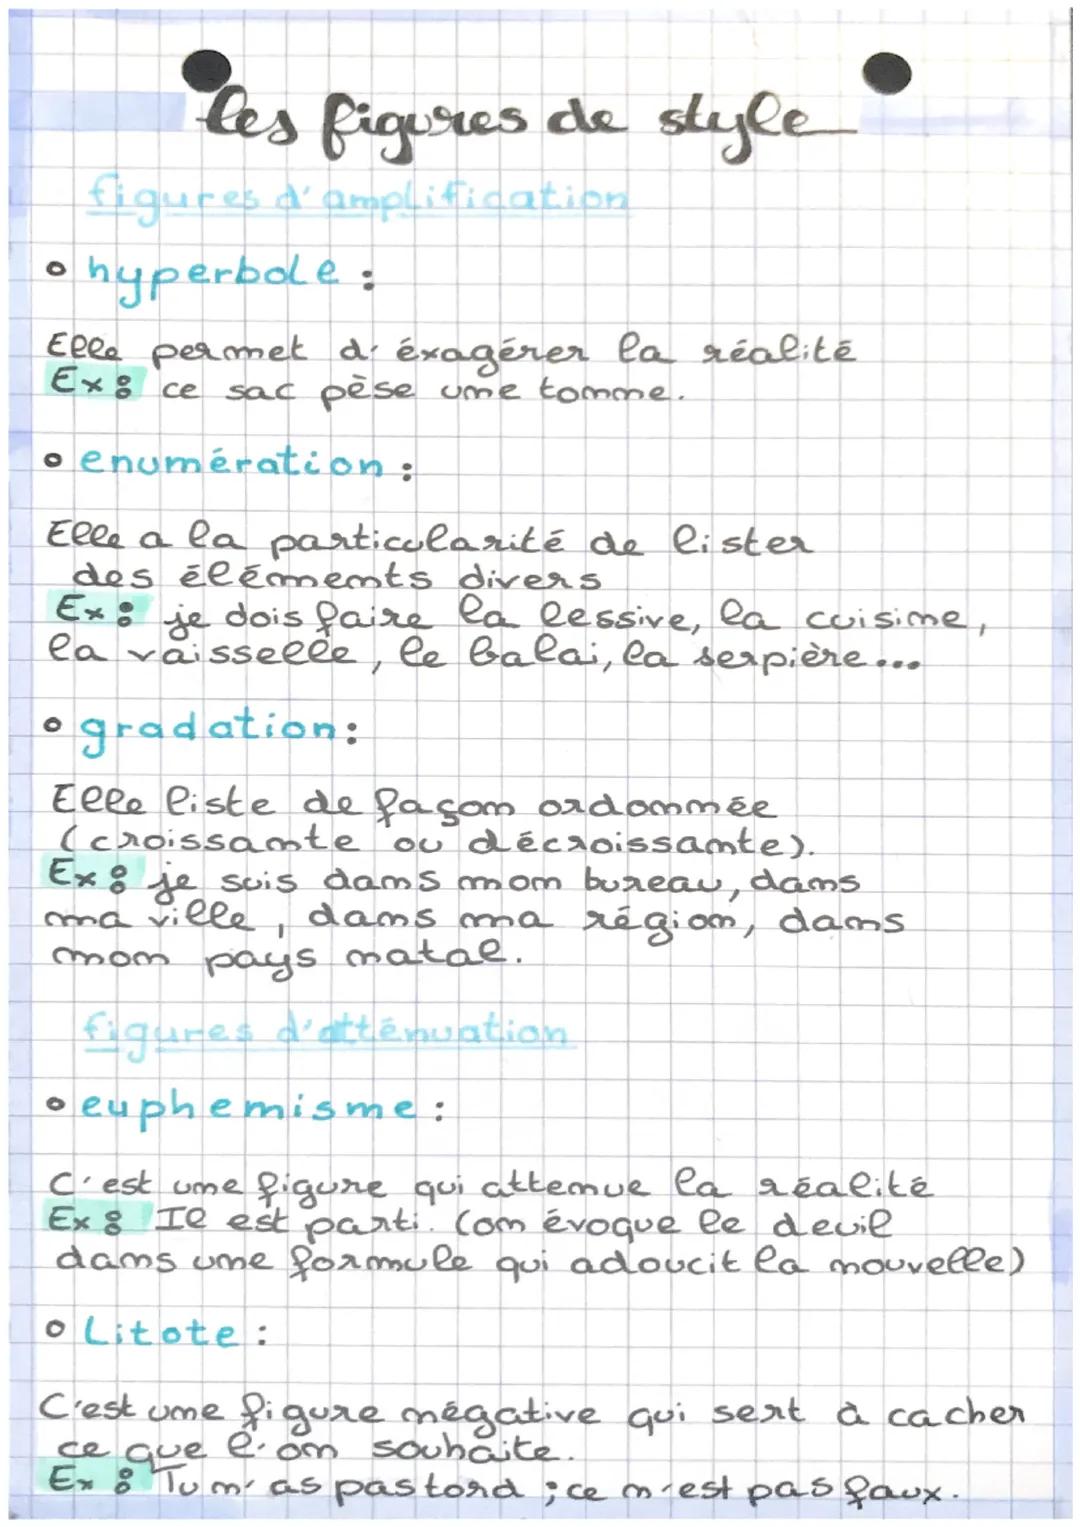 les figures de style
figures d'amplification
hyperbole :
Elle permet d'éxagérer la réalité
Ex : ce sac pèse une tonne.
enumération :
Elle a la particularité de lister
des éléments divers
Ex : je dois faire la lessive, la cuisine,
la vaisselle, le balai, la serpière...
gradation :
Elle liste de façon ordonnée
(croissante ou décroissante).
Ex : je suis dans mon bureau, dans
ma ville, dans ma région, dans
mon pays natal.
figures d'atténuation
euphemisme :
C'est une figure qui attenue la réalité
Ex : Il est parti. (on évoque le deuil
dans une formule qui adoucit la nouvelle)
Litote :
C'est une figure négative qui sert à cacher
ce que l'on souhaite.
Ex : Tu n'as pas tord ; ce n'est pas faux.